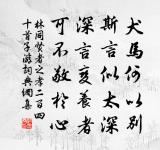 犬馬何以別
斯言似太深
深言養者
可不敬於心
林同賢者之孝二百四
十首子游詞典網集